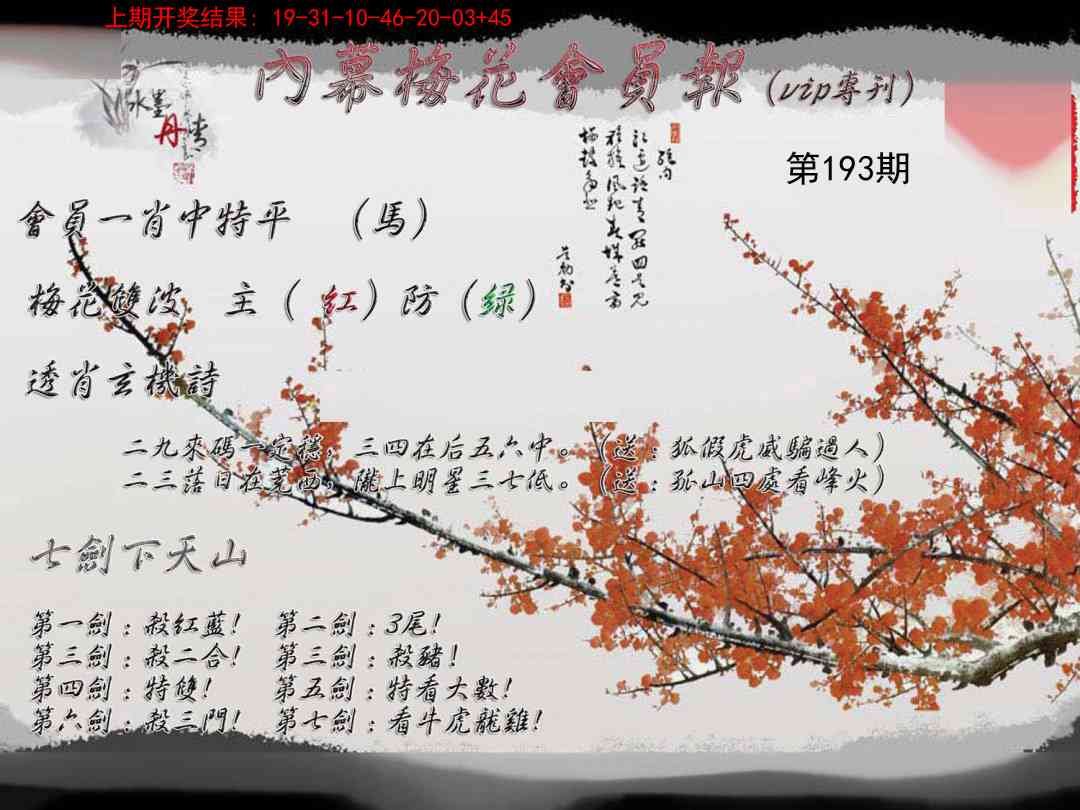 上期开奖结果: 19-31-10-46-20-03+45
內幕梅花會員報(vip專刊)
水墨
丹青
第193期
會員一肖中特平 (馬)
梅花雙波 主(紅)防(緑)
透肖玄機詩
二九來碼一定穩,三四在后五六中。(送:狐假虎威騙過人)
二三落日在荒西,隴上明星三七低。(送:孤山四處看峰火)
七劍下天山
第一劍:殺紅藍! 第二劍:3尾!
第三劍:殺二合! 第三劍:殺豬!
第四劍:特雙! 第五劍:特看大數!
第六劍:殺三門! 第七劍:看牛虎龍雞!